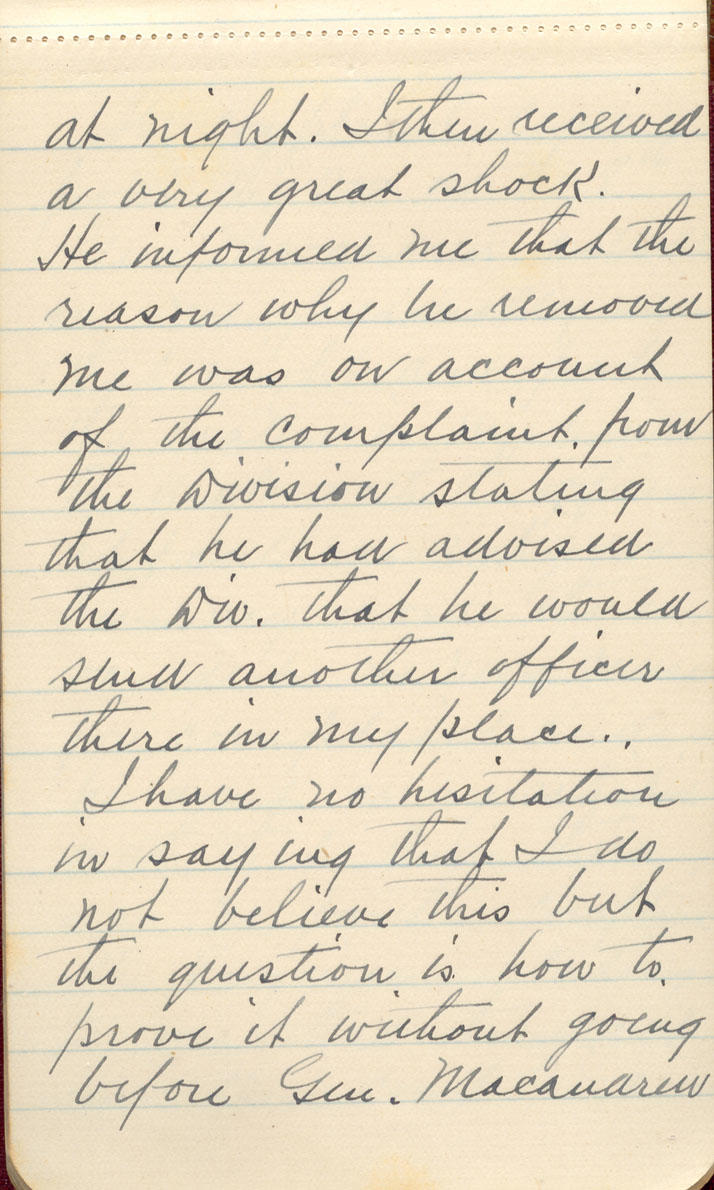 at night. I then received
a very great shock.
He informed me that the
reason why he removed
me was on account
of the complaint. from
the Division stating
that he had advised
the Div. that he would
send another officer
there in my place..
I have no hesitation
in saying that I do
not believe this but
the question is how to
prove it without going
before Gen. Macandrew